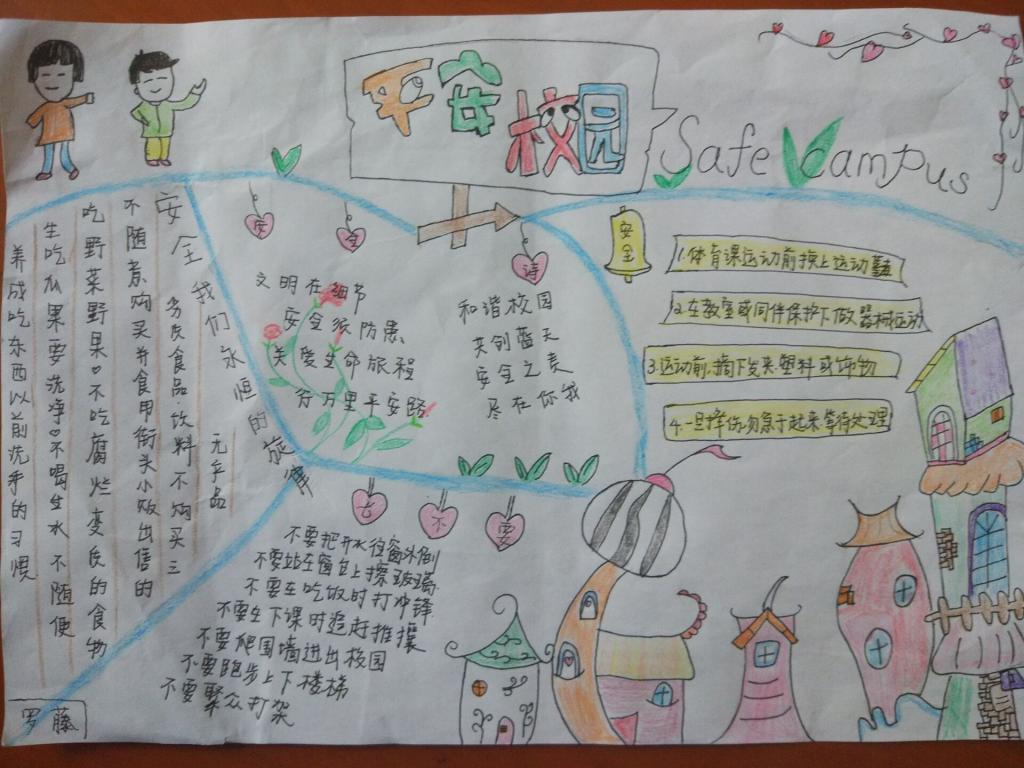 平安校园
Safe Campus
安全我们永恒的旋律
养成吃东西以前洗手的习惯
生吃瓜果要洗净。不喝生水 不随便
吃野菜野果。不吃腐烂变质的食物
不随意购买并食用街头小贩出售的
劣质食品.饮料不购买三
无产品
安全诗
文明在细节
安全须防患
关爱生命旅程
万里平安路
和谐校园
共创蓝天
安全之责
尽在你我
安全
1.体育课运动前换上运动
2.在教室或同伴保护下做器械运动
3.运动前,摘下发夹.塑料或饰物
4.一旦摔伤,勿急于起来,等待处理
七不要
不要把开水往窗外倒
不要站在窗台上擦玻璃
不要在吃饭时打冲锋
不要在下课时追赶推攘
不要爬围墙进出校园
不要跑步上下楼梯
不要聚众打架
罗藤